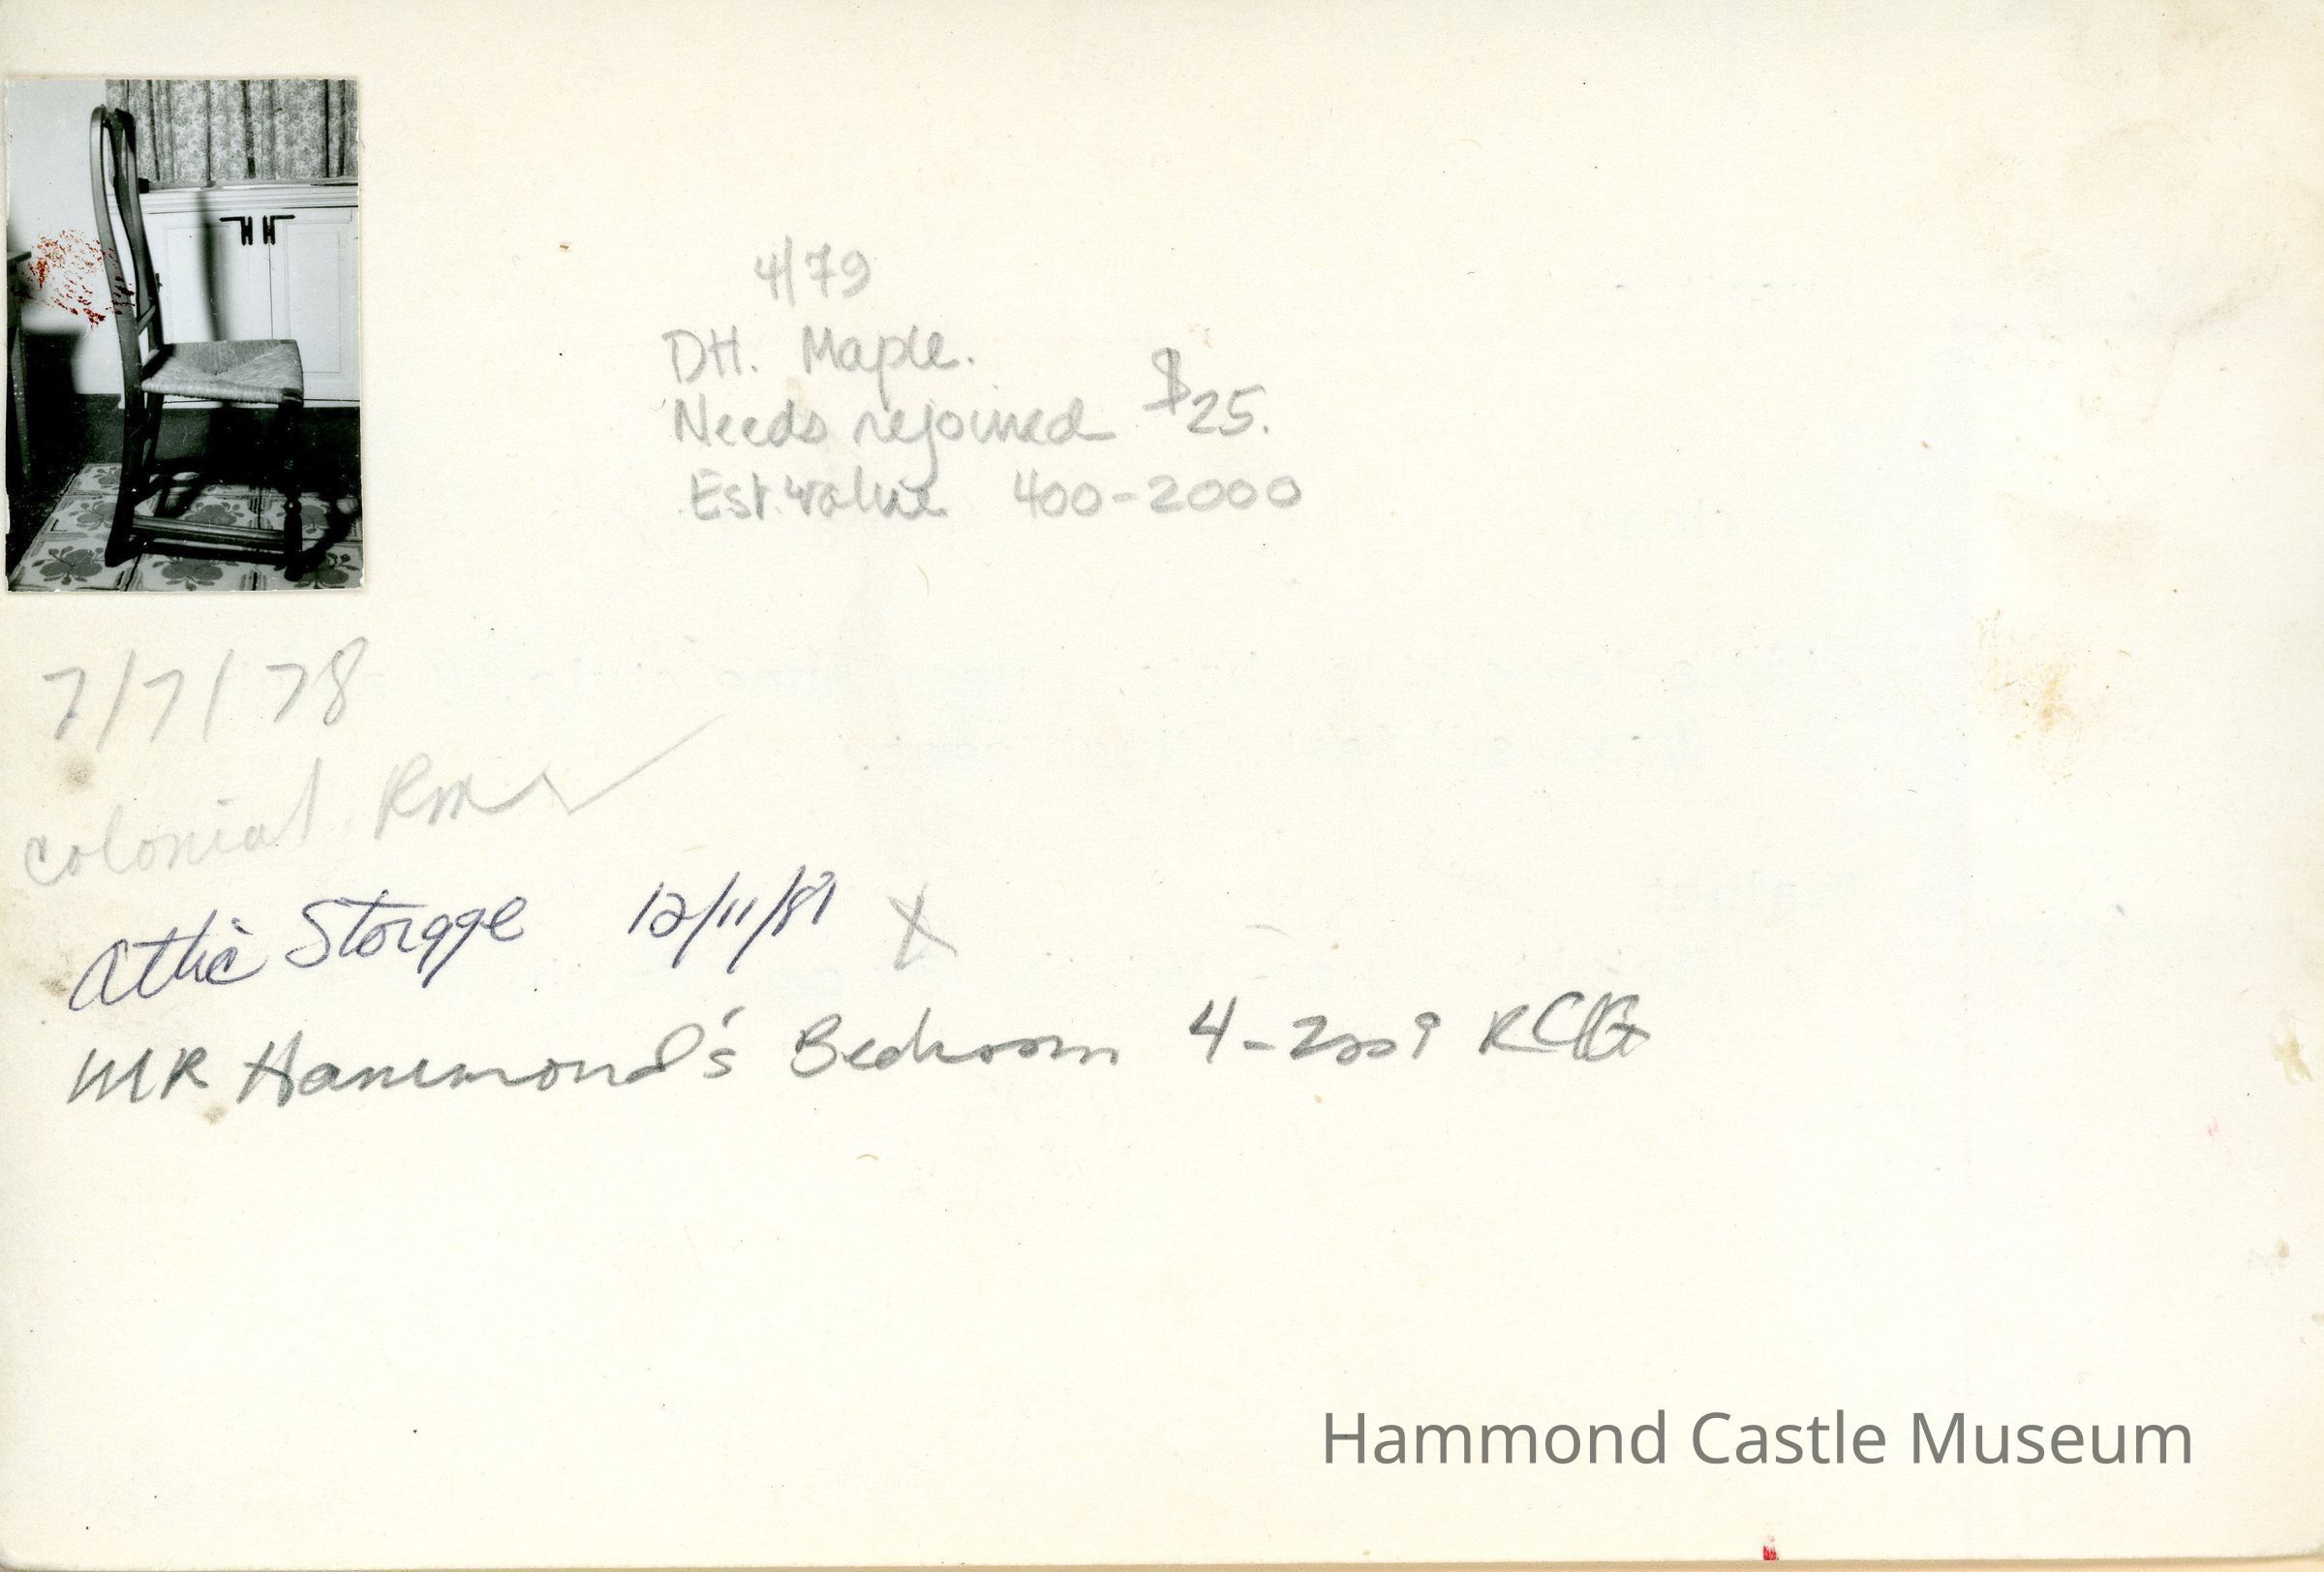 4/79
DH. Maple.
Needs rejoined $25.
Est. value 400-2000
7/7/78
Colonial Rm
Attic Storage 12/11/81 X
MR Hammond's Bedroom 4-2009
Hammond Castle Museum